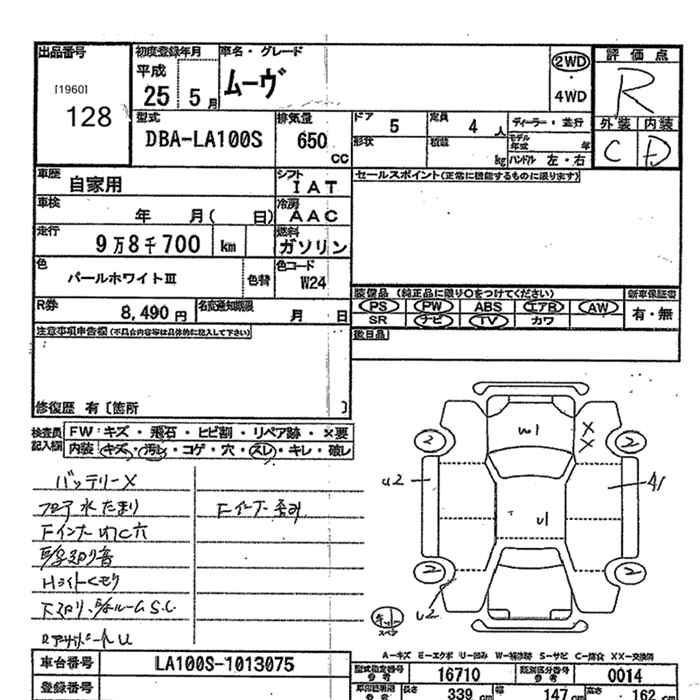 出品番号
[1960]
128
初度登録年月
平成
25 5月
車名・グレード
ムーヴ
2WD
・
4WD
評価点
R
外装 内装
C D
型式
DBA-LA100S
排気量
650
CC
ドア
5
定員
4 人
ディーラー・並行
形状
積載
kg
モデル年式
年
ハンドル 左・右
車歴
自家用
シフト
IAT
セールスポイント(正常に機能するものに限ります)
車検
年 月( 日)
冷房
AAC
走行
9万8千700 km
燃料
ガソリン
色
パールホワイトⅢ
色替
色コード
W24
R券
8,490 円
名変通知期限
月 日
装備品 (純正品に限り〇をつけてください)
新車保証書
PS PW ABS エアB AW
有・無
SR ナビ TV カワ
注意事項申告欄(不具合内容等は具体的に記入して下さい)
修復歴 有〔箇所 〕
検査員記入欄
FW:キズ・飛石・ヒビ割・リペア跡・×要
内装:キズ・汚レ・コゲ・穴・スレ・キレ・破レ
バッテリー×
フロア水たまり
Hライトくモリ
W1
U1
U2
A1
U2
2
2
2
2
×
×
スペア
A-キズ E-エクボ U-凹み W-補修跡 S-サビ C-腐食 XX-交換済
車台番号
LA100S-1013075
型式指定番号
参考
16710
類別区分番号
参考
0014
登録番号
長さ
339 cm
幅
147 cm
高さ
162 cm